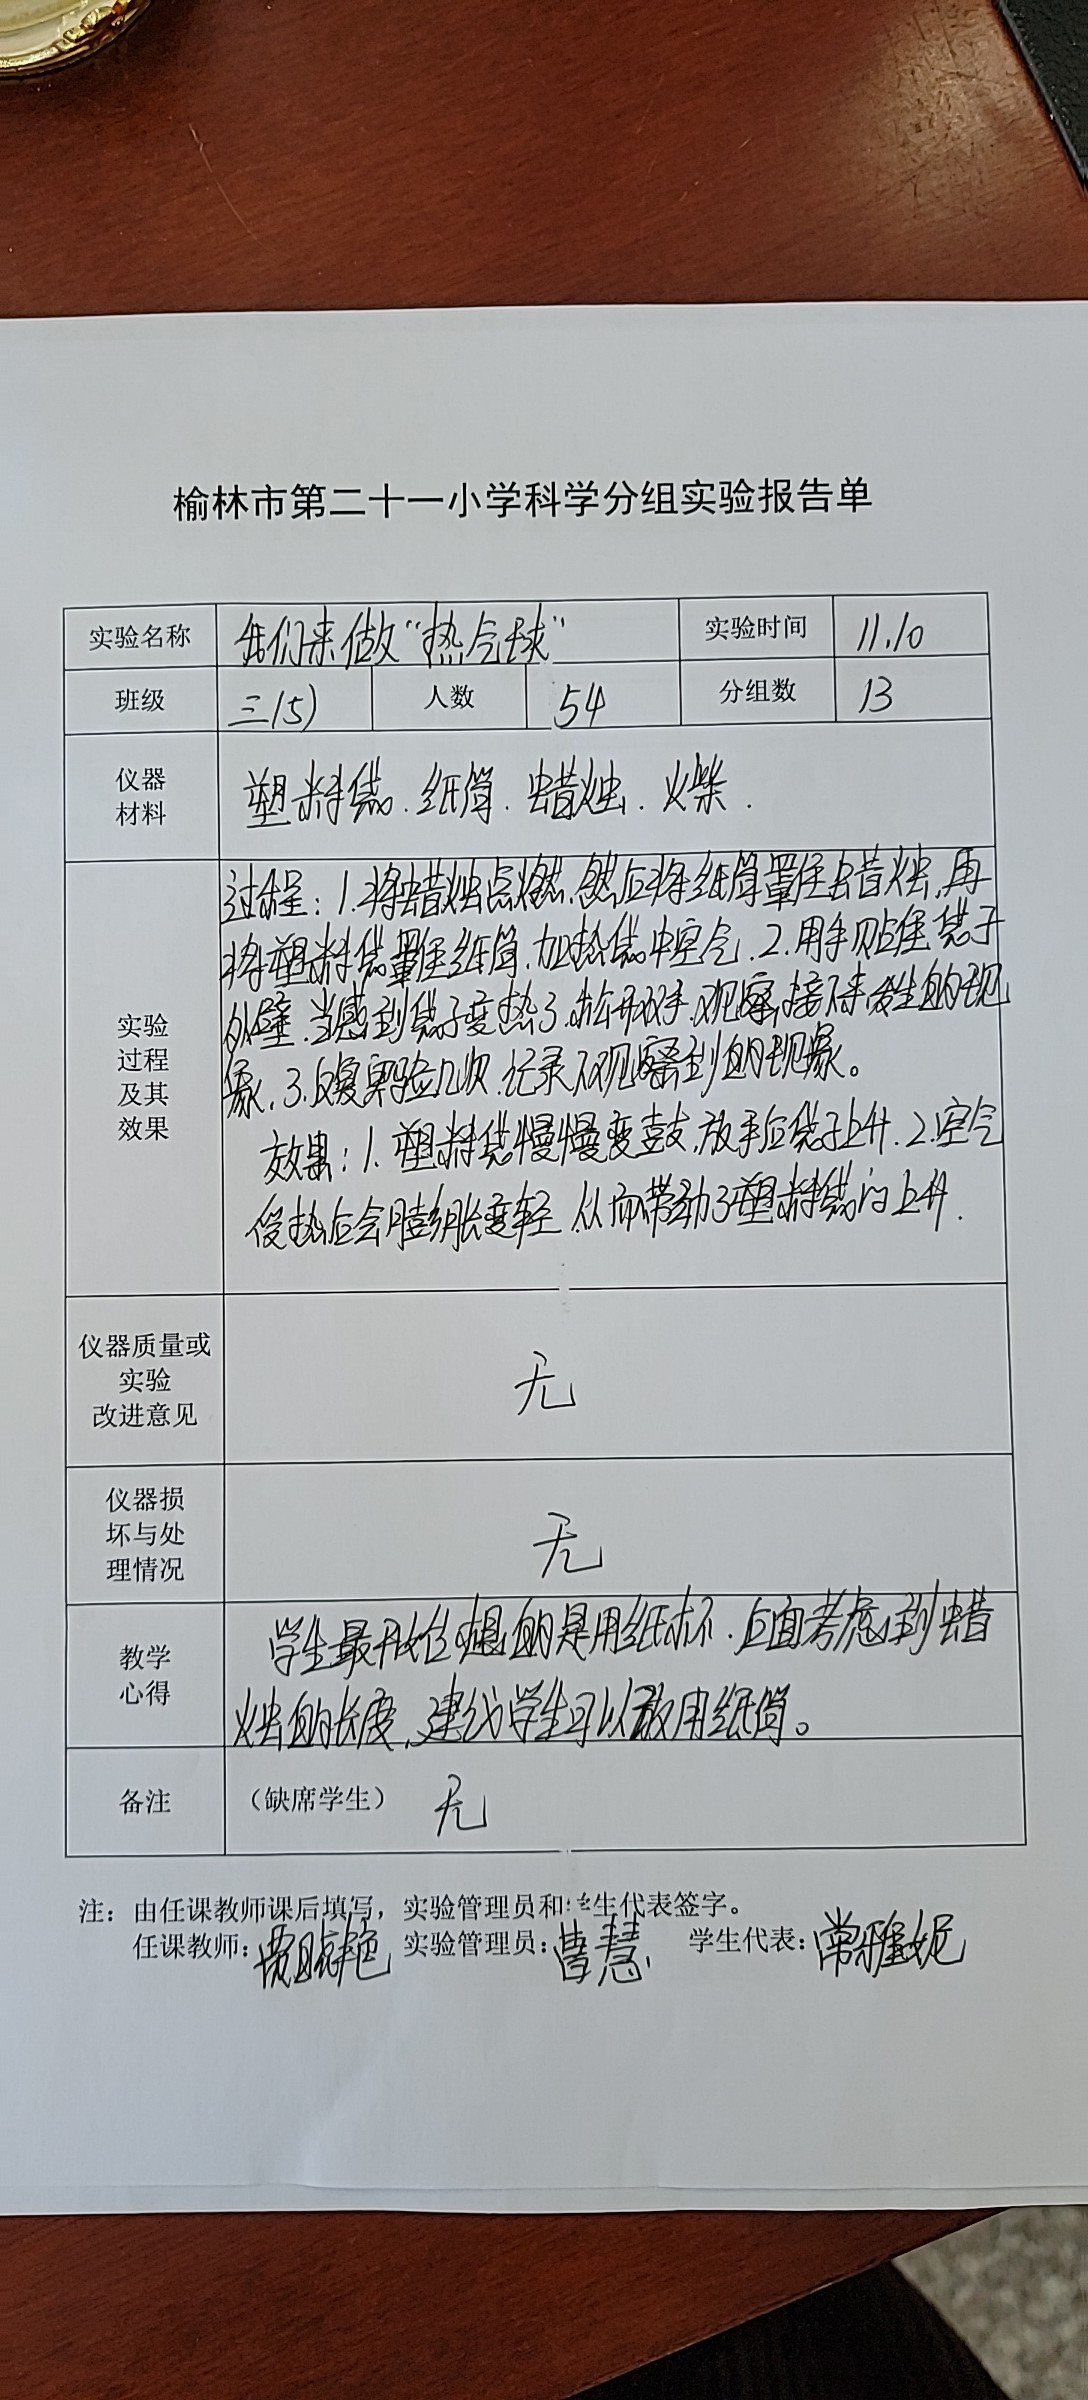 榆林市第二十一小学科学分组实验报告单
实验名称 我们来做“热气球” 实验时间 11.10
班级 三(5) 人数 54 分组数 13
仪器
材料
塑料袋.纸筒.蜡烛.火柴.
实验
过程
及其
效果
过程:1.将蜡烛点燃,然后将纸筒罩住蜡烛,再
将塑料袋罩住纸筒,加热袋中空气.2.用手贴住袋子
外壁.当感到袋子变热了.松开双手.观察接下来发生的现
象.3.反复实验几次.记录下观察到的现象。
效果:1.塑料袋慢慢变鼓,放手后袋子上升.2.空气
受热后会膨胀变轻.从而带动了塑料袋的上升.
仪器质量或
实验
改进意见
无
仪器损
坏与处
理情况
无
教学
心得
学生最开始想的是用纸杯.后面考虑到蜡
烛的长度,建议学生可以改用纸筒。
备注 (缺席学生) 无
注:由任课教师课后填写,实验管理员和学生代表签字。
任课教师:贾晓艳 实验管理员:曹慧 学生代表:常雅妮